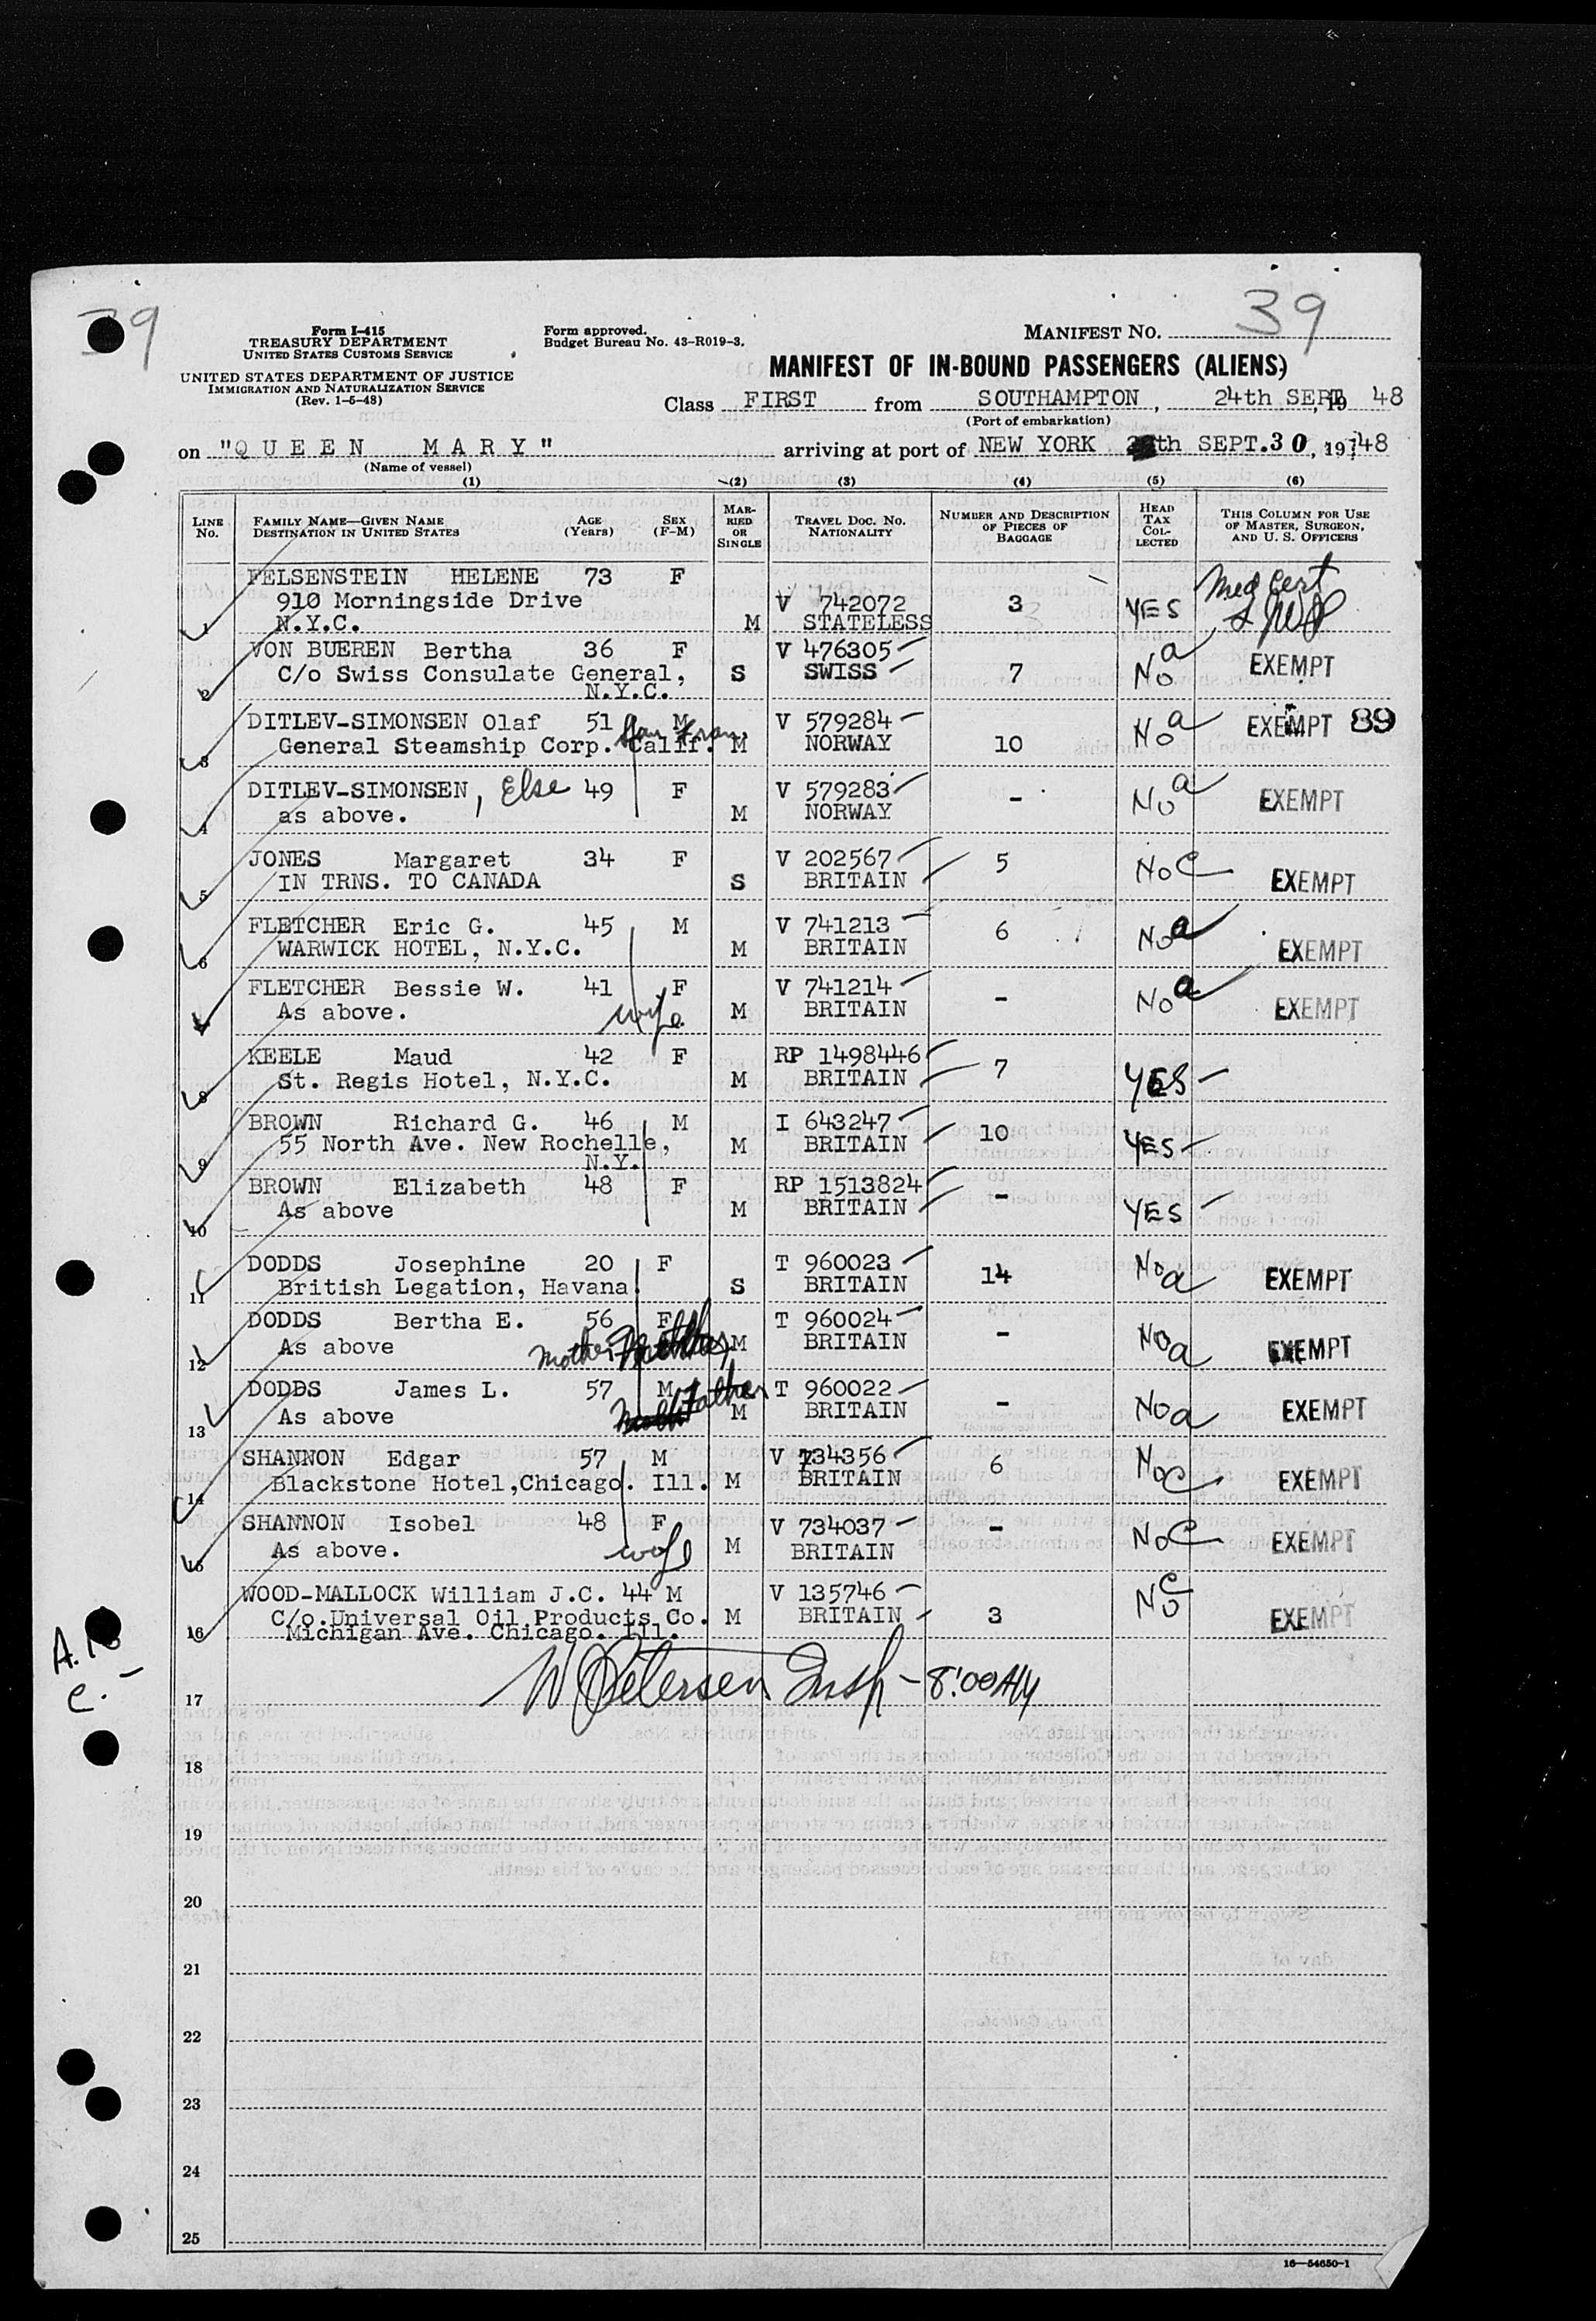 39
39
Form I-415
TREASURY DEPARTMENT
UNITED STATES CUSTOMS SERVICE
UNITED STATES DEPARTMENT OF JUSTICE
IMMIGRATION AND NATURALIZATION SERVICE
(Rev. 1-5-48)
Form approved.
Budget Bureau No. 43-R019-3.
MANIFEST NO.
MANIFEST OF IN-BOUND PASSENGERS (ALIENS)
Class FIRST from SOUTHAMPTON, 24th SEPT, 19 48
(Port of embarkation)
on "QUEEN MARY" arriving at port of NEW YORK th SEPT. 30, 1948
(Name of vessel)
(1) (2) (3) (4) (5) (6)
LINE No. FAMILY NAME—GIVEN NAME DESTINATION IN UNITED STATES AGE (Years) SEX (F-M) MARRIED OR SINGLE TRAVEL DOC. NO. NATIONALITY NUMBER AND DESCRIPTION OF PIECES OF BAGGAGE HEAD TAX COLLECTED THIS COLUMN FOR USE OF MASTER, SURGEON, AND U. S. OFFICERS
FELSENSTEIN HELENE 73 F Med Cert
910 Morningside Drive V 742072 3 YES
1 N.Y.C. M STATELESS
VON BUEREN Bertha 36 F V 476305 a
2 C/o Swiss Consulate General, S SWISS 7 No EXEMPT
N.Y.C.
DITLEV-SIMONSEN Olaf 51 M V 579284 No a EXEMPT 89
3 General Steamship Corp. San Fran. Calif. M NORWAY 10
DITLEV-SIMONSEN, Else 49 F V 579283 - No a EXEMPT
4 as above. M NORWAY
JONES Margaret 34 F V 202567 5 No C
5 IN TRNS. TO CANADA S BRITAIN EXEMPT
FLETCHER Eric G. 45 M V 741213 6 No a
6 WARWICK HOTEL, N.Y.C. M BRITAIN EXEMPT
FLETCHER Bessie W. 41 F V 741214 - No a
As above. wife M BRITAIN EXEMPT
KEELE Maud 42 F RP 1498446 7
8 St. Regis Hotel, N.Y.C. M BRITAIN YES -
BROWN Richard G. 46 M I 643247 10
9 55 North Ave. New Rochelle, M BRITAIN YES -
N.Y.
BROWN Elizabeth 48 F RP 1513824 -
10 As above M BRITAIN YES -
DODDS Josephine 20 F T 960023 14 No a EXEMPT
11 British Legation, Havana. S BRITAIN
DODDS Bertha E. 56 F T 960024 - No a
12 As above Mother M BRITAIN EXEMPT
DODDS James L. 57 M T 960022 - No a EXEMPT
13 As above Father M BRITAIN
SHANNON Edgar 57 M V 734356 6 No c
14 Blackstone Hotel, Chicago. Ill. M BRITAIN EXEMPT
SHANNON Isobel 48 F V 734037 - No C
15 As above. wife M BRITAIN EXEMPT
WOOD-MALLOCK William J.C. 44 M V 135746 No c
16 C/o. Universal Oil Products Co. M BRITAIN 3 EXEMPT
Michigan Ave. Chicago. Ill.
W Petersen Insp - 8:00 AM
17
18
19
20
21
22
23
24
25
16—54650-1